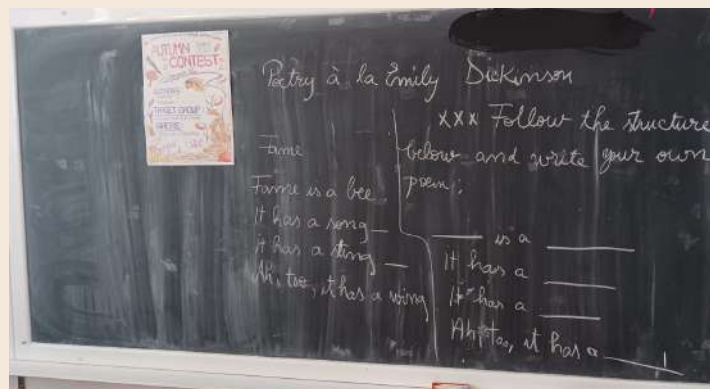 AUTUMN
CONTEST
TARGET GROUP:
Poetry à la Emily Dickinson
Fame
Fame is a bee.
It has a song —
it has a sting —
Ah, too, it has a wing
xxx Follow the structure
below and write your own
poem:
____ is a ____
It has a ____
It has a ____
Ah, too, it has a ____!